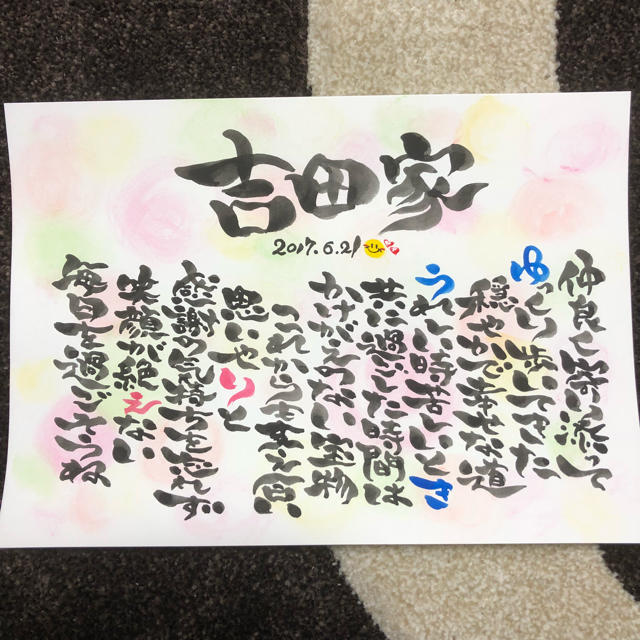 吉田家
2017.6.21
仲良く寄り添って
ゆっくり歩いてきた
穏やかで幸せな道
うれしい時苦しいとき
共に過ごした時間は
かけがえのない宝物
これからも支え合い
思いやりと
感謝の気持ちを忘れず
笑顔が絶えない
毎日を過ごしていこうね